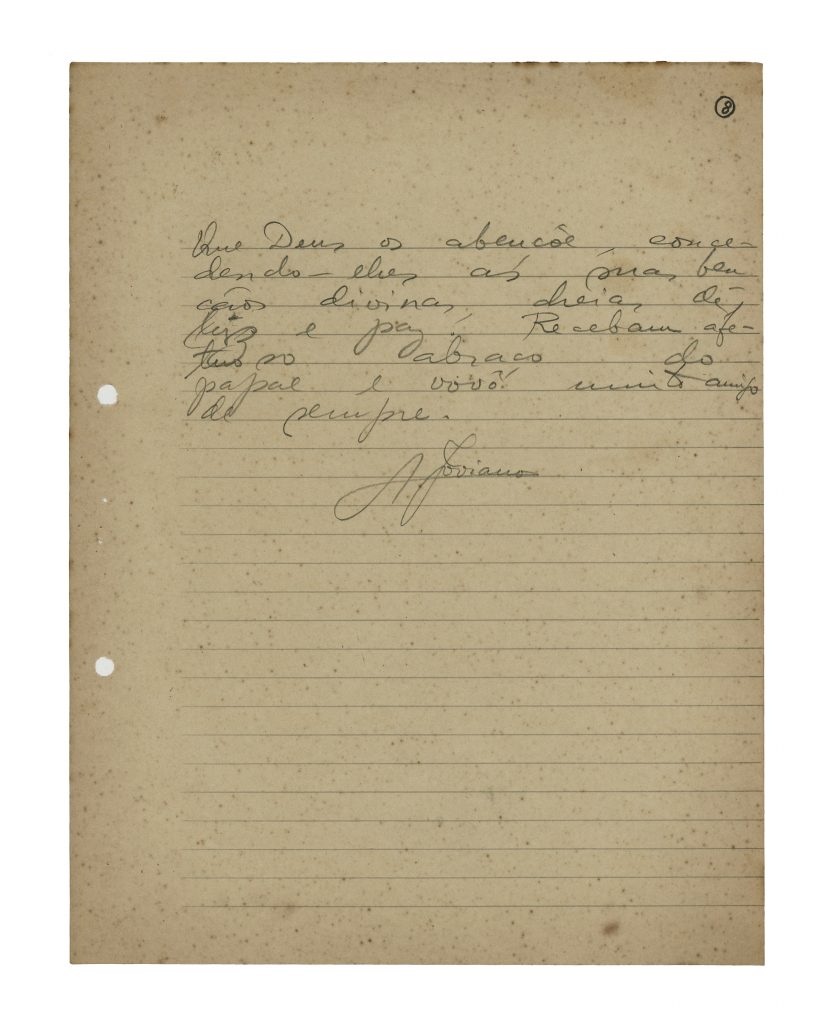 8
Que Deus os abençõe, conce-
dendo-lhes as suas ben
çãos divinas, cheias de
luz e paz. Recebam afe-
tuoso abraço do
papae e vovô muito amigo
de sempre.
A Joviano